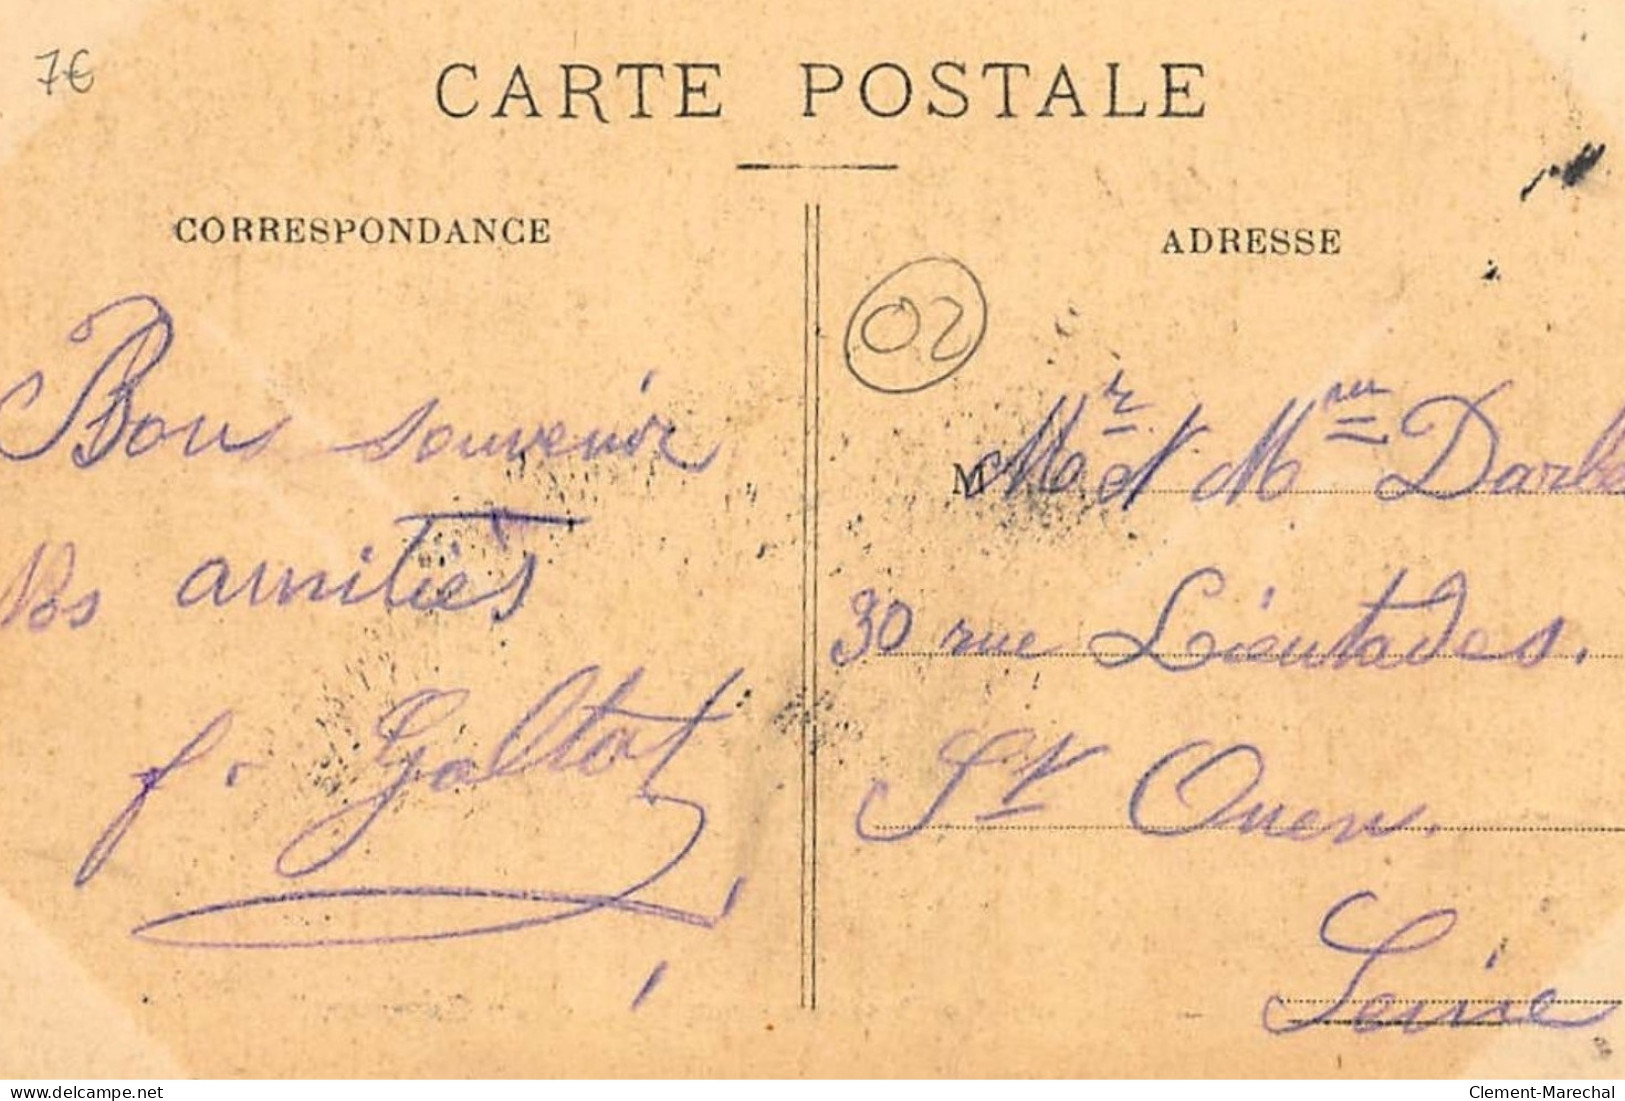 7€
CARTE POSTALE
CORRESPONDANCE
ADRESSE
02
Bon souvenir
Nos amitiés
f. Galtat
M Mr et Mme Darb
30 rue Lieutades.
St Ouen.
Seine
delcampe.net
Clement-Marechal